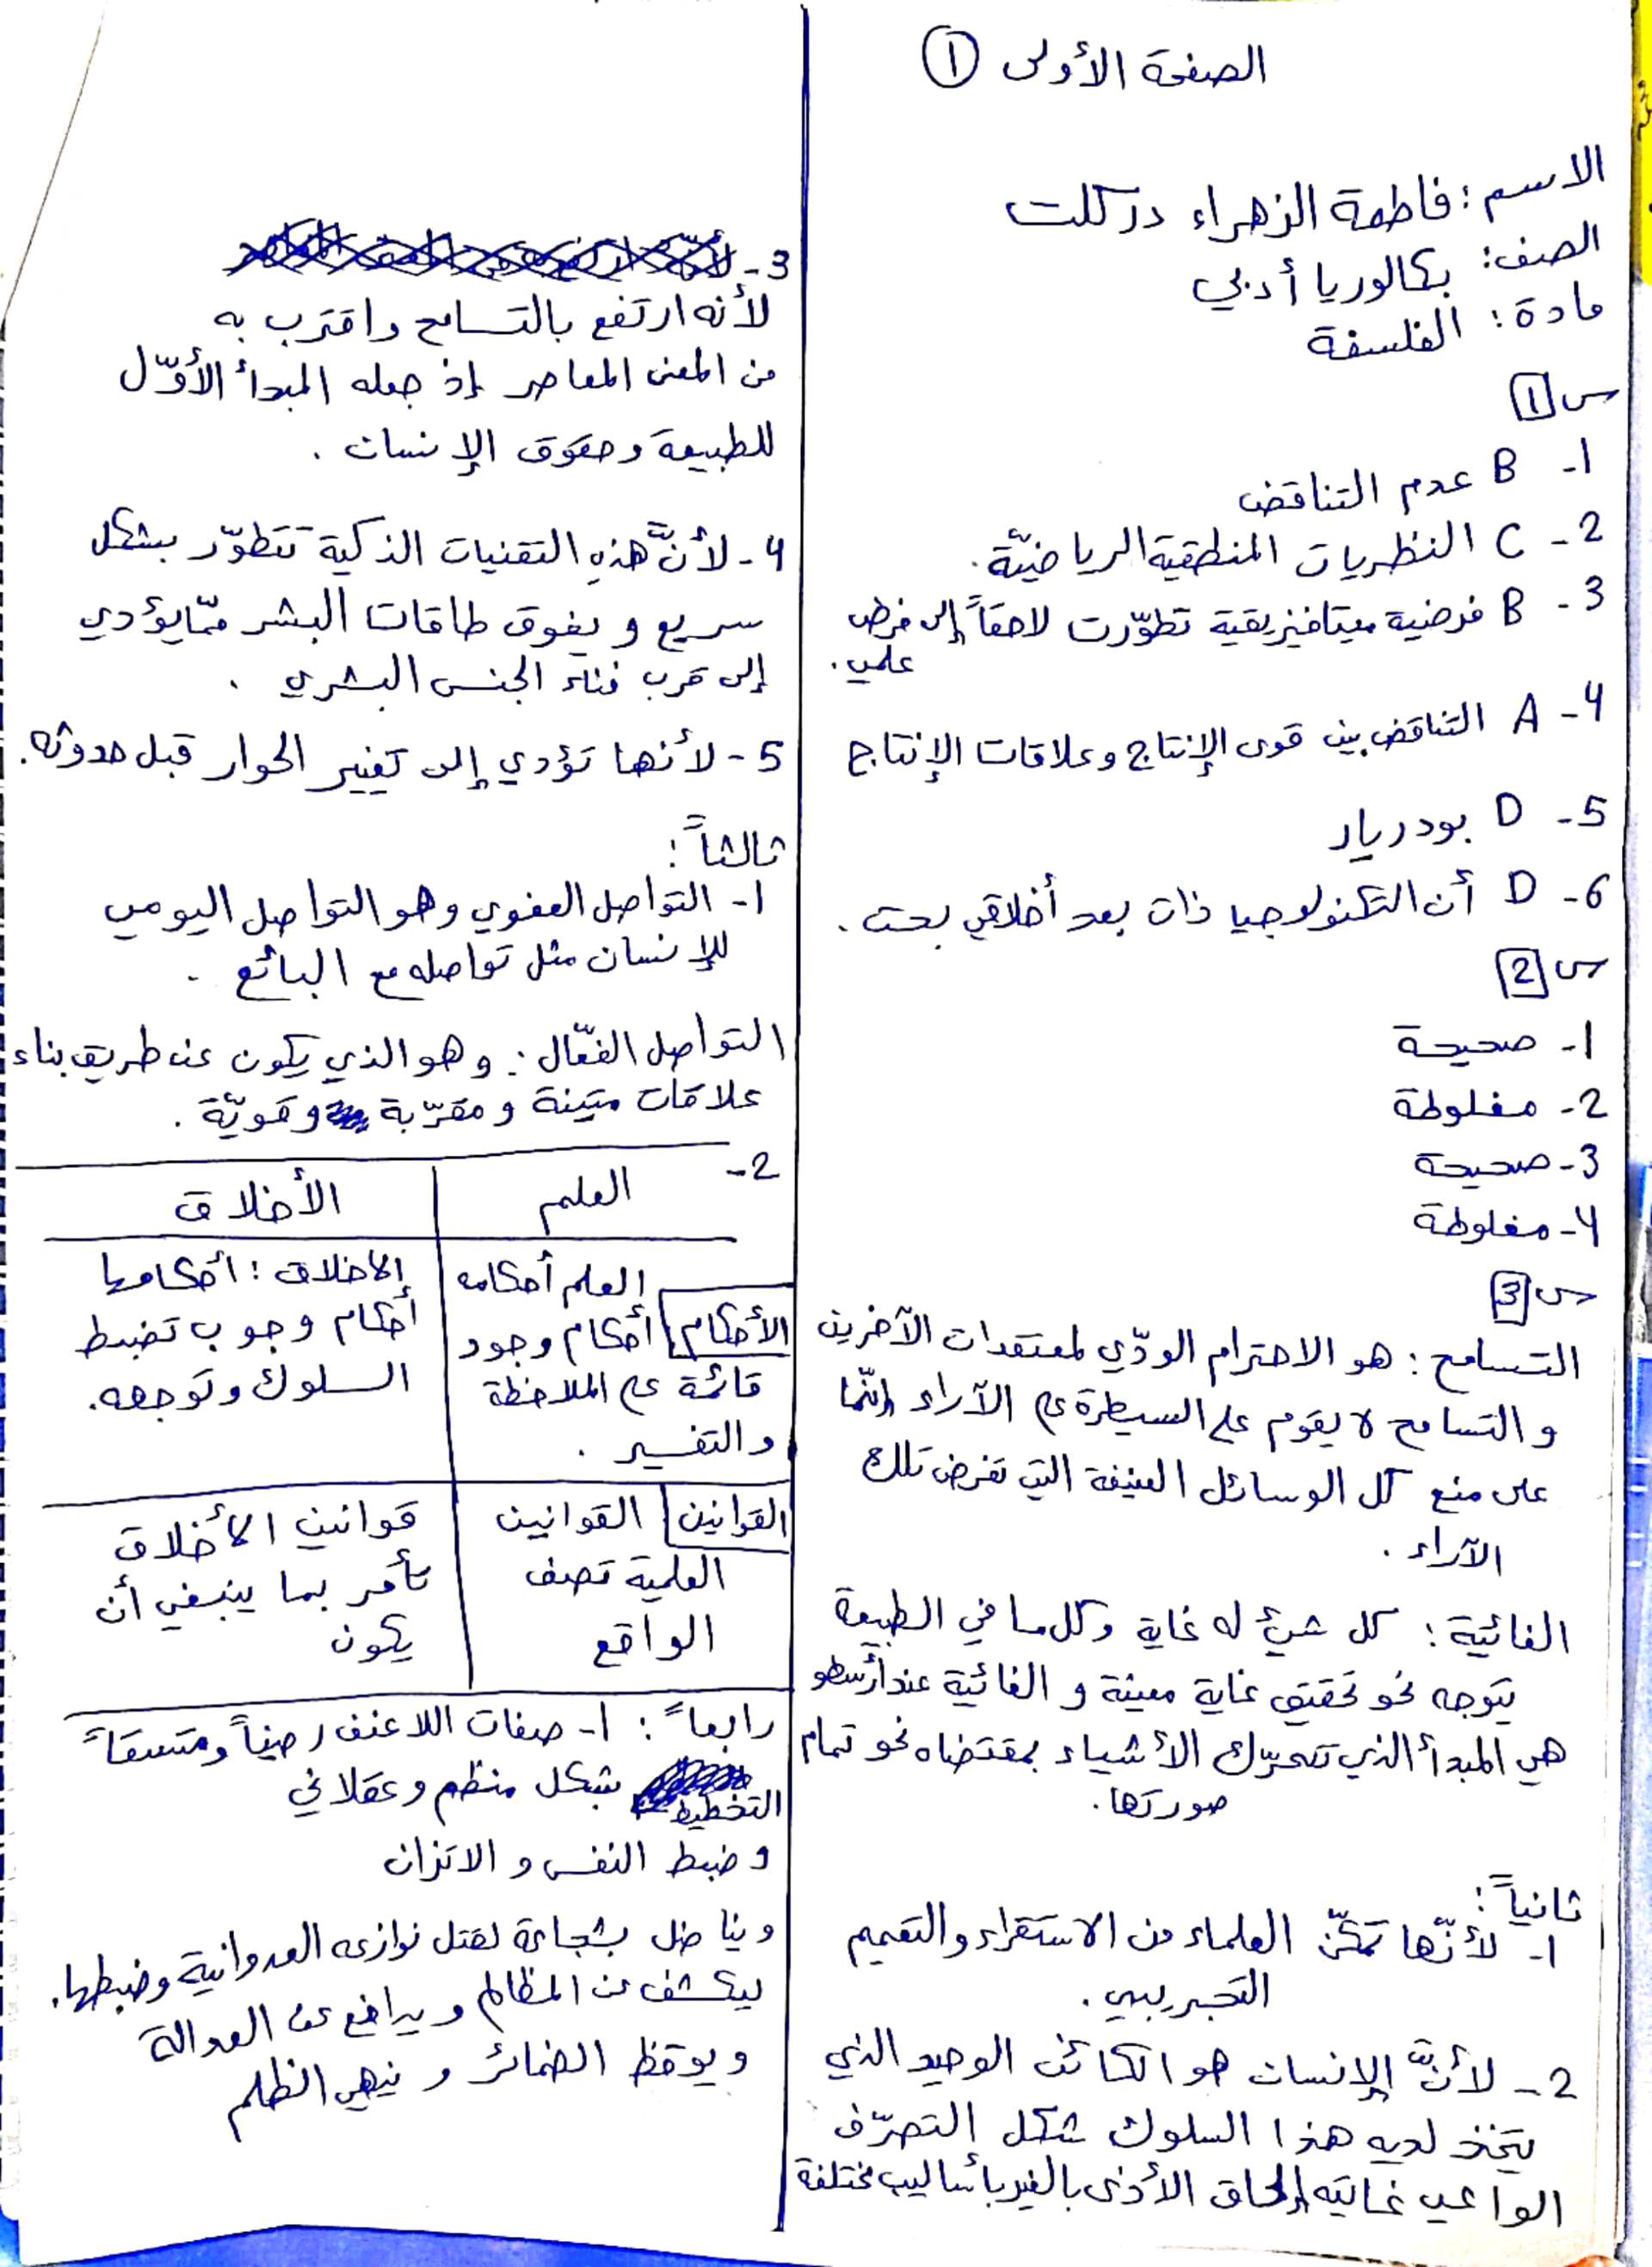 الصفحة الأولى ①
الاسم: فاطمة الزهراء دركلت
الصف: بكالوريا أدبي
مادة: الفلسفة
س 1
1- B عدم التناقض
2- C النظريات المنطقية الرياضيّة.
3- B فرضية ميتافيزيقية تطوّرت لاحقاً إلى فرض
علمي.
4- A التناقض بين قوى الإنتاج وعلاقات الإنتاج
5- D بودريار
6- D أن التكنولوجيا ذات بعد أخلاقي بحت.
س 2
1- صحيحة
2- مغلوطة
3- صحيحة
4- مغلوطة
س 3
التسامح: هو الاحترام الودّي لمعتقدات الآخرين
و التسامح لا يقوم على السيطرة على الآراء إنّما
على منع كل الوسائل العنيفة التي تفرض تلك
الآراء.
الغائية: كل شيء له غاية وكل ما في الطبيعة
يتوجه نحو تحقيق غاية معينة و الغائية عند أرسطو
هي المبدأ الذي تتحرّك الأشياء بمقتضاه نحو تمام
صورتها.
ثانياً:
1- لأنّها تمكّن العلماء من الاستقراء والتعميم
التجريبي.
2- لأنَّ الإنسان هو الكائن الوحيد الذي
يتخذ لديه هذا السلوك شكل التصرّف
الواعي غايته إلحاق الأذى بالغير بأساليب مختلفة
3-
لأنه ارتفع بالتسامح واقترب به
من المعنى المعاصر إذ جعله المبدأ الأوّل
للطبيعة وحقوق الإنسان.
4- لأنَّ هذه التقنيات الذكية تتطوّر بشكل
سريع و يفوق طاقات البشر ممّا يؤدي
إلى قرب فناء الجنس البشري.
5- لأنها تؤدي إلى تغيير الحوار قبل حدوثه.
ثالثاً:
1- التواصل العفوي وهو التواصل اليومي
للإنسان مثل تواصله مع البائع.
التواصل الفعّال: وهو الذي يكون عن طريق بناء
علاقات متينة و مقرّبة وقويّة.
2-
العلم | الأخلاق
الأحكام | العلم أحكامه | الأخلاق: أحكامها
أحكام وجود | أحكام وجوب تضبط
قائمة على الملاحظة | السلوك وتوجهه.
والتفسير.
القوانين | القوانين | قوانين الأخلاق
العلمية تصف | تأمر بما ينبغي أن
الواقع | يكون
رابعاً: 1- صفات اللاعنف رصيناً ومتسقاً
التخطيط بشكل منظم وعقلاني
وضبط النفس و الاتزان
ويناضل بشجاعة لقتل نوازعه العدوانية وضبطها.
ليكشف عن المظالم ويدافع عن العدالة
ويوقظ الضمائر و ينهي الظلم